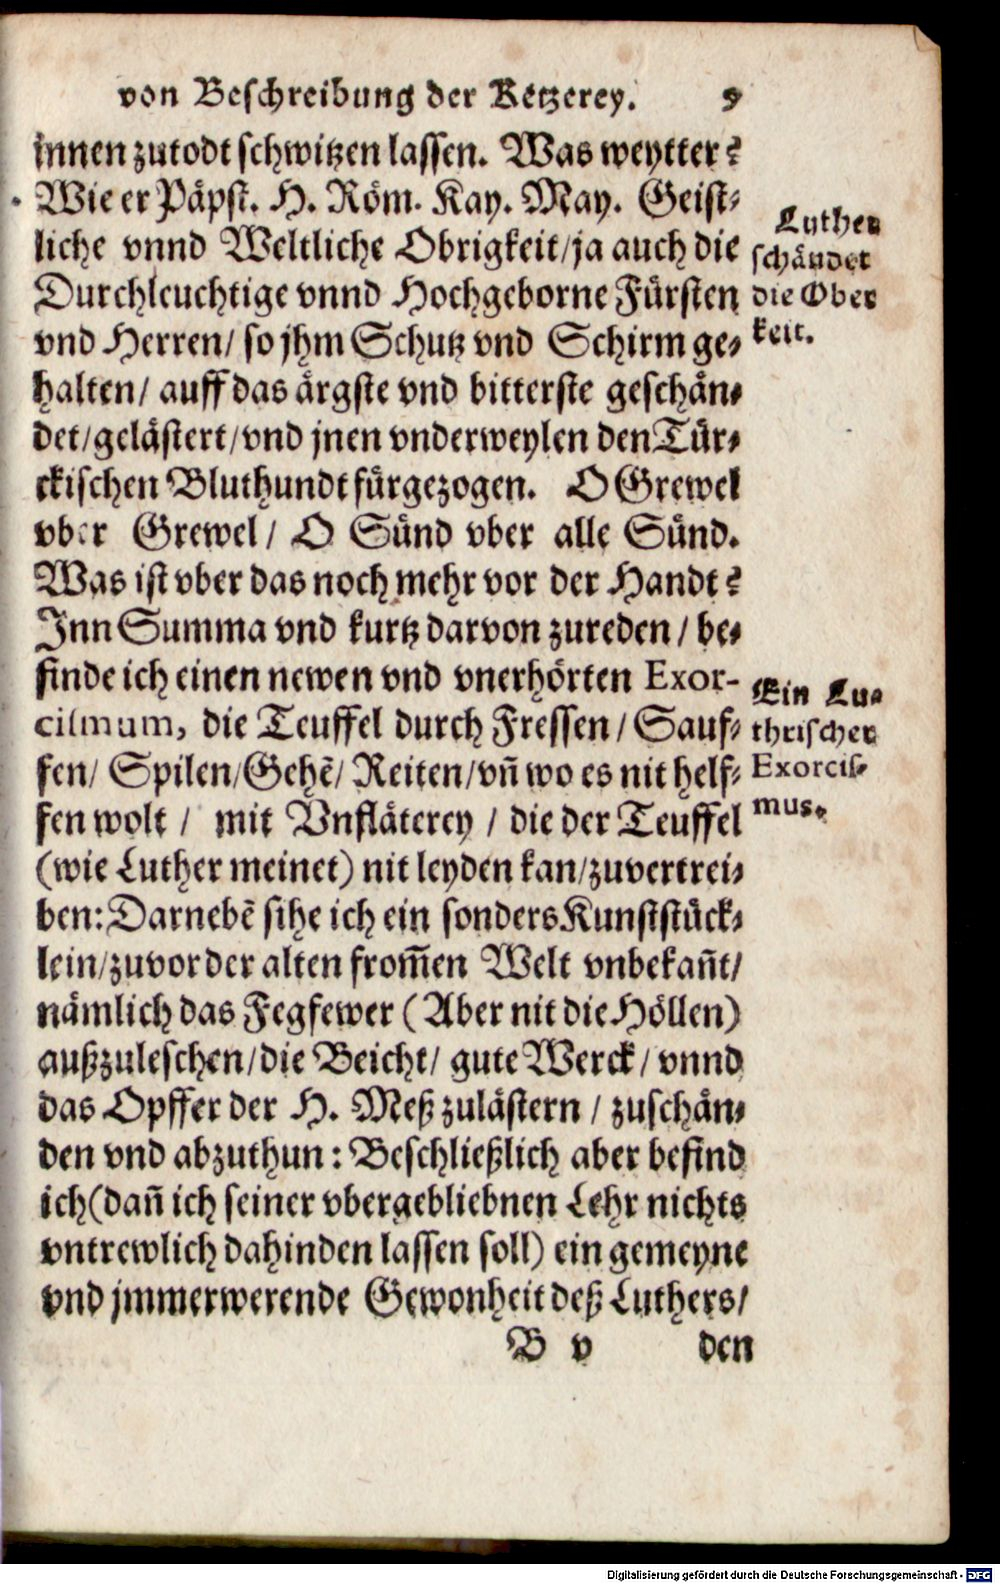 von Beschreibung der Ketzerey. 9
innen zutodt schwitzen lassen. Was weytter?
Wie er Päpst. H. Röm. Kay. May. Geist-
liche vnnd Weltliche Obrigkeit/ ja auch die
Durchleuchtige vnnd Hochgeborne Fürsten
vnd Herren/ so jhm Schutz vnd Schirm ge-
halten/ auff das ärgste vnd bitterste geschän-
det/ gelästert/ vnd jnen vnderweylen den Tür-
ckischen Bluthundt fürgezogen. O Grewel
vber Grewel/ O Sünd vber alle Sünd.
Was ist vber das noch mehr vor der Handt?
Inn Summa vnd kurtz darvon zureden/ be-
finde ich einen newen vnd vnerhörten Exor-
cismum, die Teuffel durch Fressen/ Sauf-
fen/ Spilen/ Gehẽ/ Reiten/ vñ wo es nit helf-
fen wolt/ mit Vnfläterey/ die der Teuffel
(wie Luther meinet) nit leyden kan/ zuvertrei-
ben: Darnebẽ sihe ich ein sonders Kunststück-
lein/ zuvor der alten from̃en Welt vnbekañt/
nämlich das Fegfewer (Aber nit die Höllen)
außzuleschen/ die Beicht/ gute Werck/ vnnd
das Opffer der H. Meß zulästern/ zuschän-
den vnd abzuthun: Beschließlich aber befind
ich (dañ ich seiner vbergebliebnen Lehr nichts
vntrewlich dahinden lassen soll) ein gemeyne
vnd jmmerwerende Gewonheit deß Luthers/
B v den
Luther
schändet
die Ober
keit.
Ein Lu-
thrischer
Exorcis-
mus.
Digitalisierung gefördert durch die Deutsche Forschungsgemeinschaft - DFG